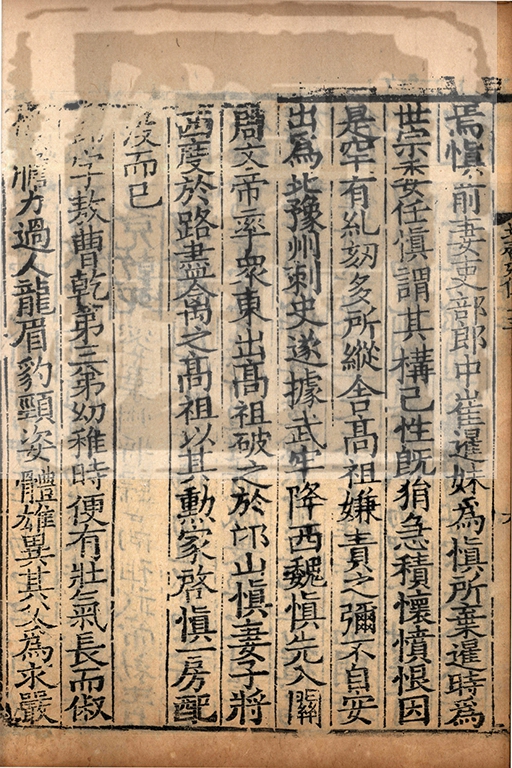 焉愼前妻吏部郎中崔暹妹爲愼所棄暹時爲
世宗委任愼謂其構己性旣狷急積懷憤恨因
是罕有糺劾多所縱舍高祖嫌責之彌不自安
出爲北豫州刺史遂據武牢降西魏愼先入關
周文帝率衆東出高祖破之於邙山愼妻子將
西度於路盡禽之高祖以其勳家啓愼一房配
没而已
字敖曹乾第三弟幼稚時便有壯氣長而俶
膽力過人龍眉豹頸姿體雄異其父爲求嚴